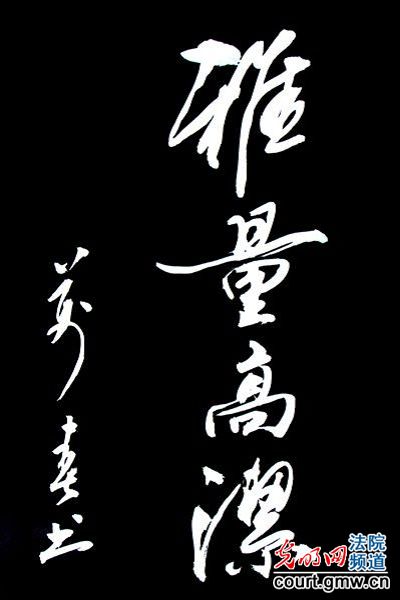 雅量高潔
萬春书
光明网 法院
频道
court.gmw.cn